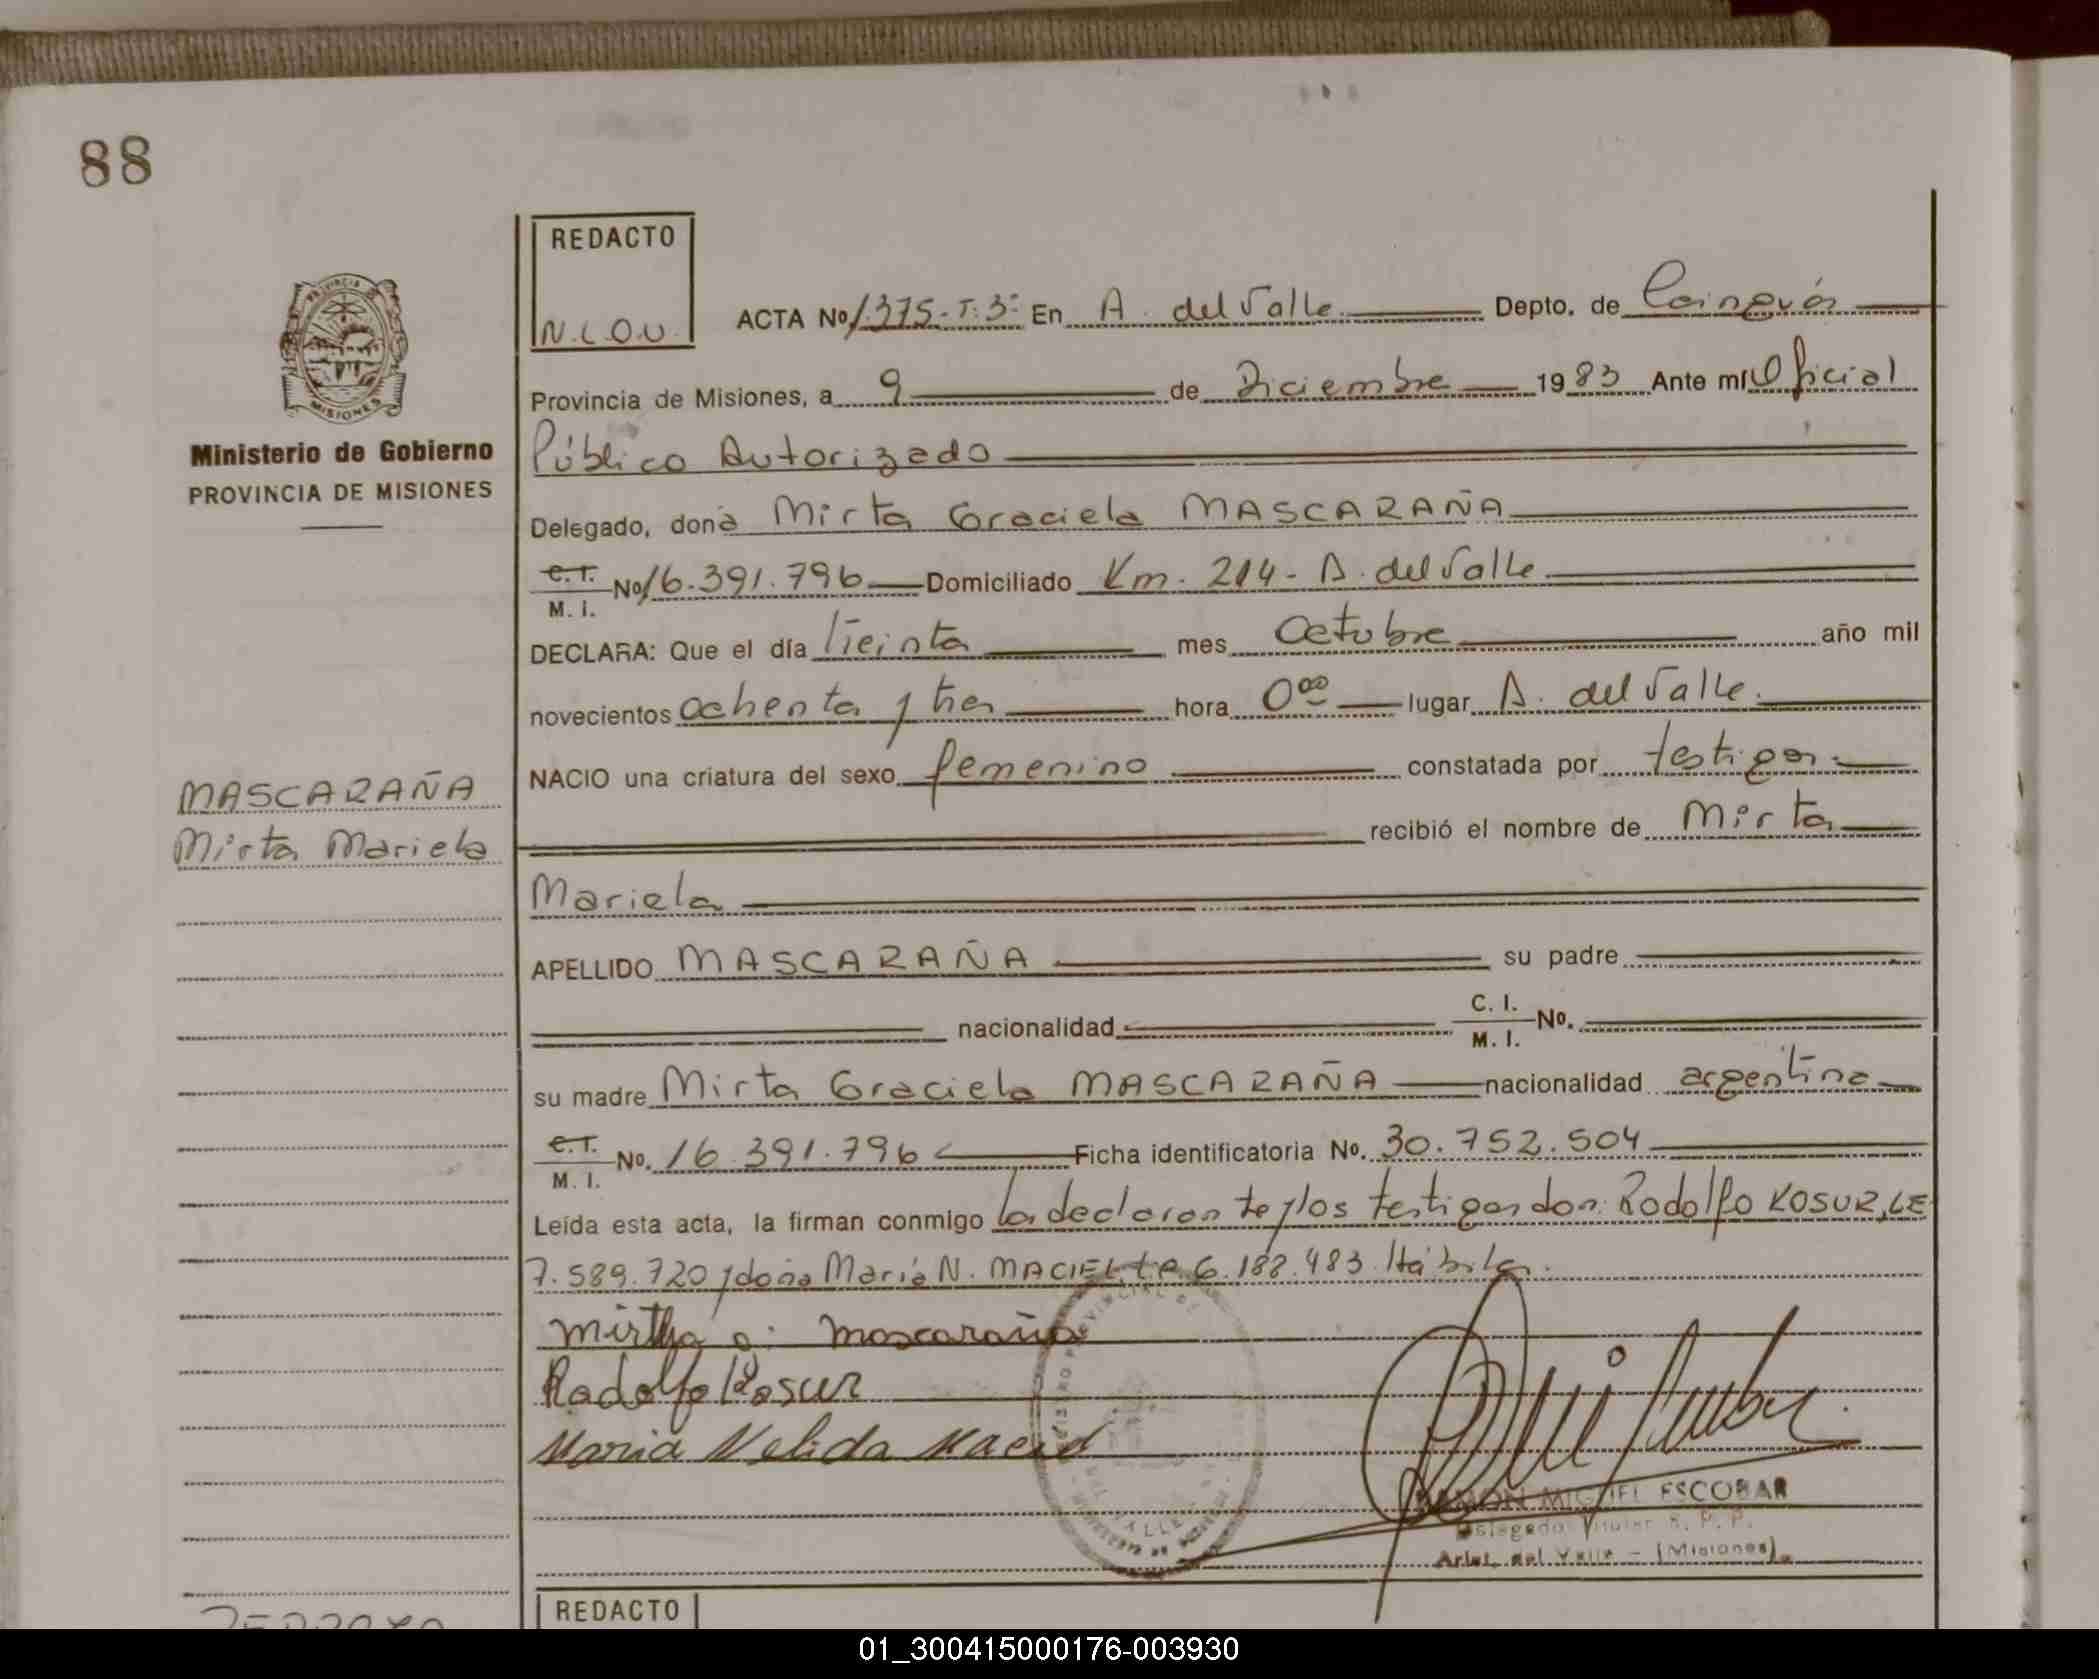 88
REDACTO
N.L.O.U.
ACTA No 1.375-T.3º En A. del Valle Depto. de Cainguás
Provincia de Misiones, a 9 de Diciembre 1983 Ante mí Oficial
Público Autorizado
Ministerio de Gobierno
PROVINCIA DE MISIONES
Delegado, doña Mirta Graciela MASCARAÑA
C.I. M.I. No 16.391.796 Domiciliado Km. 214- A. del Valle
DECLARA: Que el día treinta mes Octubre año mil
novecientos ochenta y tres hora 0⁰⁰ lugar A. del Valle.
NACIO una criatura del sexo femenino constatada por testigos
MASCARAÑA
Mirta Mariela
recibió el nombre de Mirta
Mariela
APELLIDO MASCARAÑA su padre
nacionalidad C.I. M.I. No.
su madre Mirta Graciela MASCARAÑA nacionalidad argentina
C.I. M.I. No. 16.391.796 Ficha identificatoria No. 30.752.504
Leída esta acta, la firman conmigo la declarante y los testigos don: Rodolfo KOSUR, LE
7.589.720 y doña María N. MACIEL, LC 6.188.483 Hábiles.
Mirtha G. Mascaraña
Rodolfo Kosur
Maria Nelida Maciel
RAMON MIGUEL ESCOBAR
Delegado Titular R. P. P.
Arist. del Valle - (Misiones)
REDACTO
01_300415000176-003930